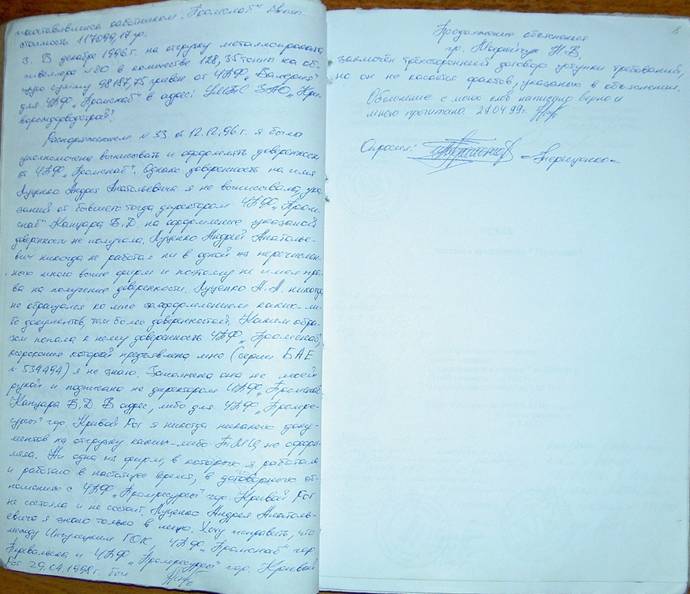 стоимость 117099,17 гр.
3. В декабре 1996 г. на отгрузку металлопроката
швеллера №20 в количестве 128,35 тонн на об-
щую сумму 98187,75 гривен от ЧПФ
для ЧПФ „Промснаб" в адрес:
Распоряжением №33 от 12.12.96 г. я была
уполномочена выписывать и оформлять доверенности
от ЧПФ „Промснаб". Однако доверенность на имя
Луценко Андрея Анатольевича я не выписывала, ука-
заний от бывшего тогда директором ЧПФ „Пром-
снаб" Канцара Б.Д. на оформление указанной
доверенности не получала. Луценко Андрей Анатолье-
вич никогда не работал ни в одной из перечислен-
ных мною выше фирм и поэтому не имел пра-
ва на получение доверенности. Луценко А.А. никогда
не обращался ко мне за оформлением каких-ли-
бо документов, тем более доверенностей. Каким обра-
зом попала к нему доверенность ЧПФ „Промснаб",
ксерокопия которой предъявлена мне (серии БАЕ
№ 534494) я не знаю. Заполнена она не моей
рукой и подписана не директором ЧПФ „Промснаб"
Канцара Б.Д. В адрес, либо для ЧПФ „Промре-
сурсы" гор. Кривой Рог я никогда никаких доку-
ментов на отгрузку каких-либо ТМЦ не оформ-
ляла. Ни одна из фирм, в которых я работала
и работаю в настоящее время, в договорных от-
ношениях с ЧПФ „Промресурсы" гор. Кривой Рог
не состояла и не состоит. Луценко Андрея Анатоль-
евича я знаю только в лицо. Хочу исправить, что
между Ингулецким ГОК, ЧПФ „Промснаб" гор.
и ЧПФ „Промресурсы" гор. Кривой
Рог 29.04.1998 г. был
Продолжение объяснения
гр. Н.В.
заключён трёхсторонний договор уступки требований,
но он не касается фактов, указанных в объяснении.
Объяснение с моих слов написано верно и
мною прочитано. 27.04.99 г.
Опросил: